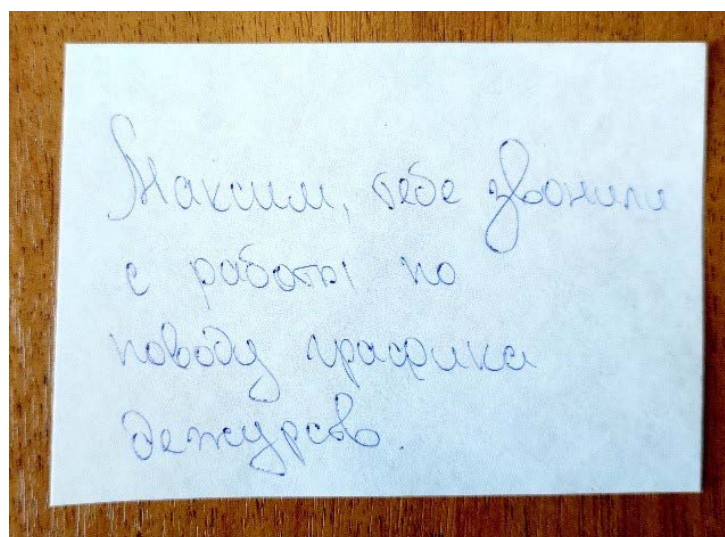 Максим, тебе звонили
с работы по
поводу графика
дежурств.